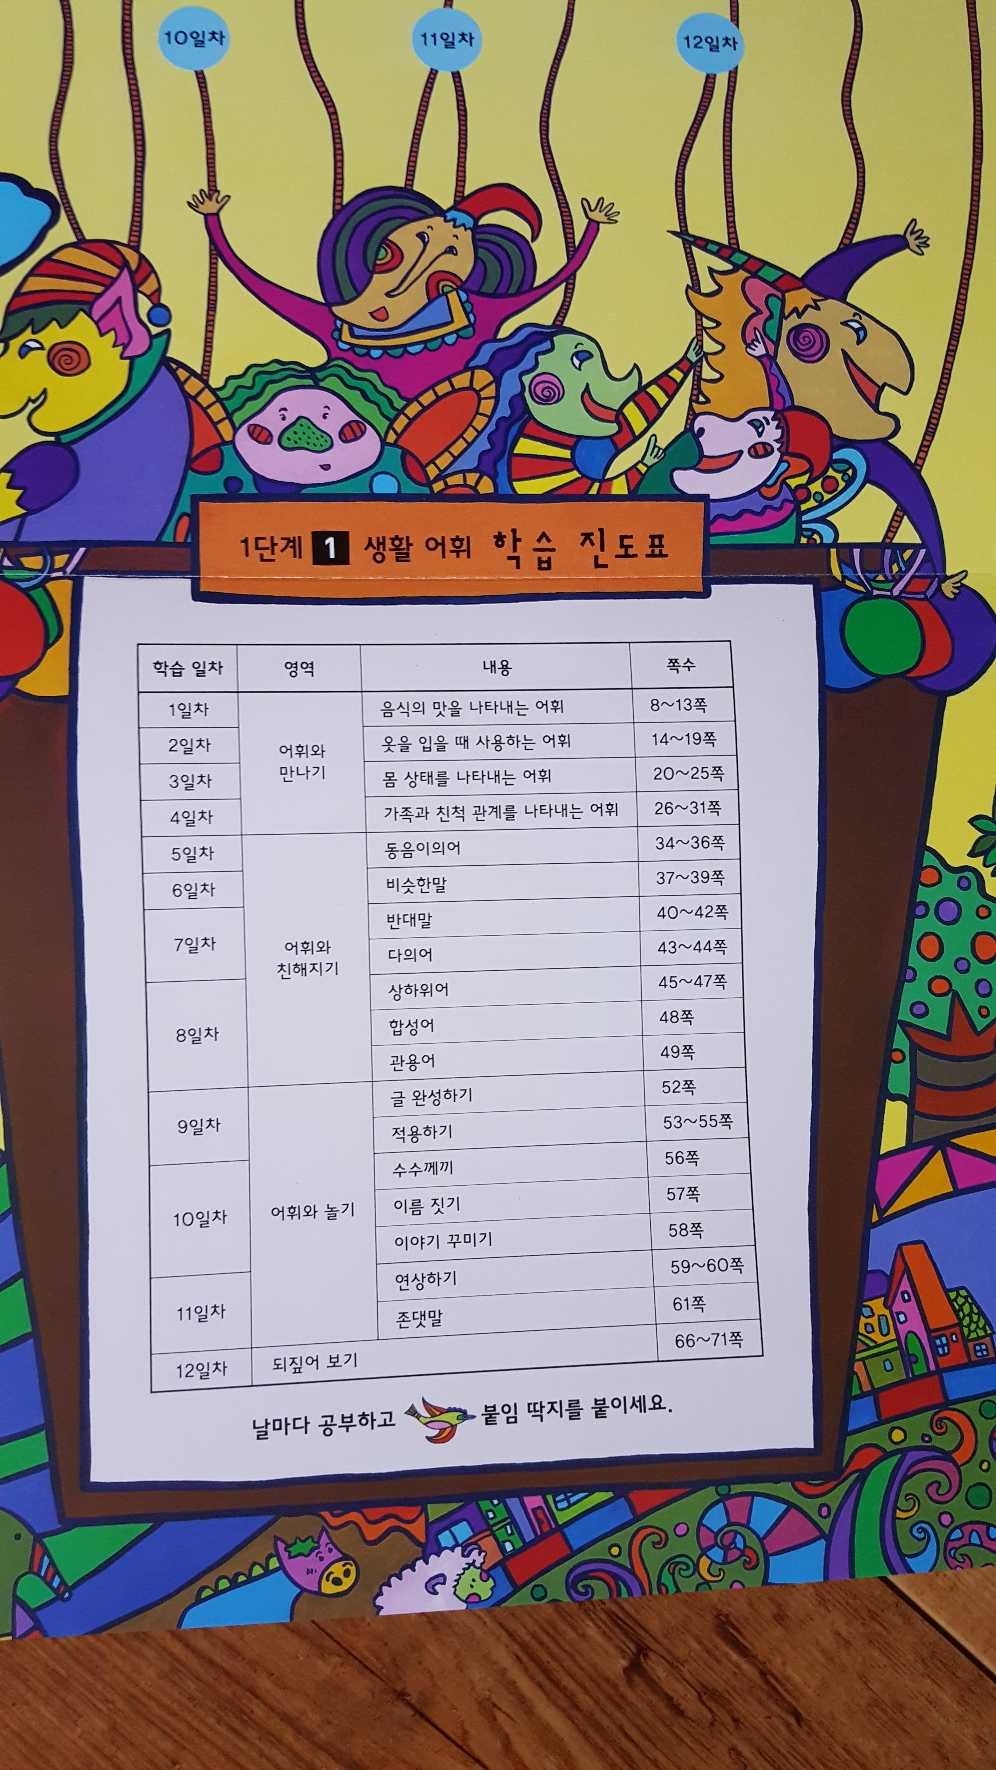 10일차 11일차 12일차
1단계 1 생활 어휘 학습 진도표
학습 일차 영역 내용 쪽수
1일차 어휘와 만나기 음식의 맛을 나타내는 어휘 8~13쪽
2일차 옷을 입을 때 사용하는 어휘 14~19쪽
3일차 몸 상태를 나타내는 어휘 20~25쪽
4일차 가족과 친척 관계를 나타내는 어휘 26~31쪽
5일차 어휘와 친해지기 동음이의어 34~36쪽
6일차 비슷한말 37~39쪽
7일차 반대말 40~42쪽
다의어 43~44쪽
8일차 상하위어 45~47쪽
합성어 48쪽
관용어 49쪽
9일차 어휘와 놀기 글 완성하기 52쪽
적용하기 53~55쪽
10일차 수수께끼 56쪽
이름 짓기 57쪽
이야기 꾸미기 58쪽
11일차 연상하기 59~60쪽
존댓말 61쪽
12일차 되짚어 보기 66~71쪽
날마다 공부하고 붙임 딱지를 붙이세요.